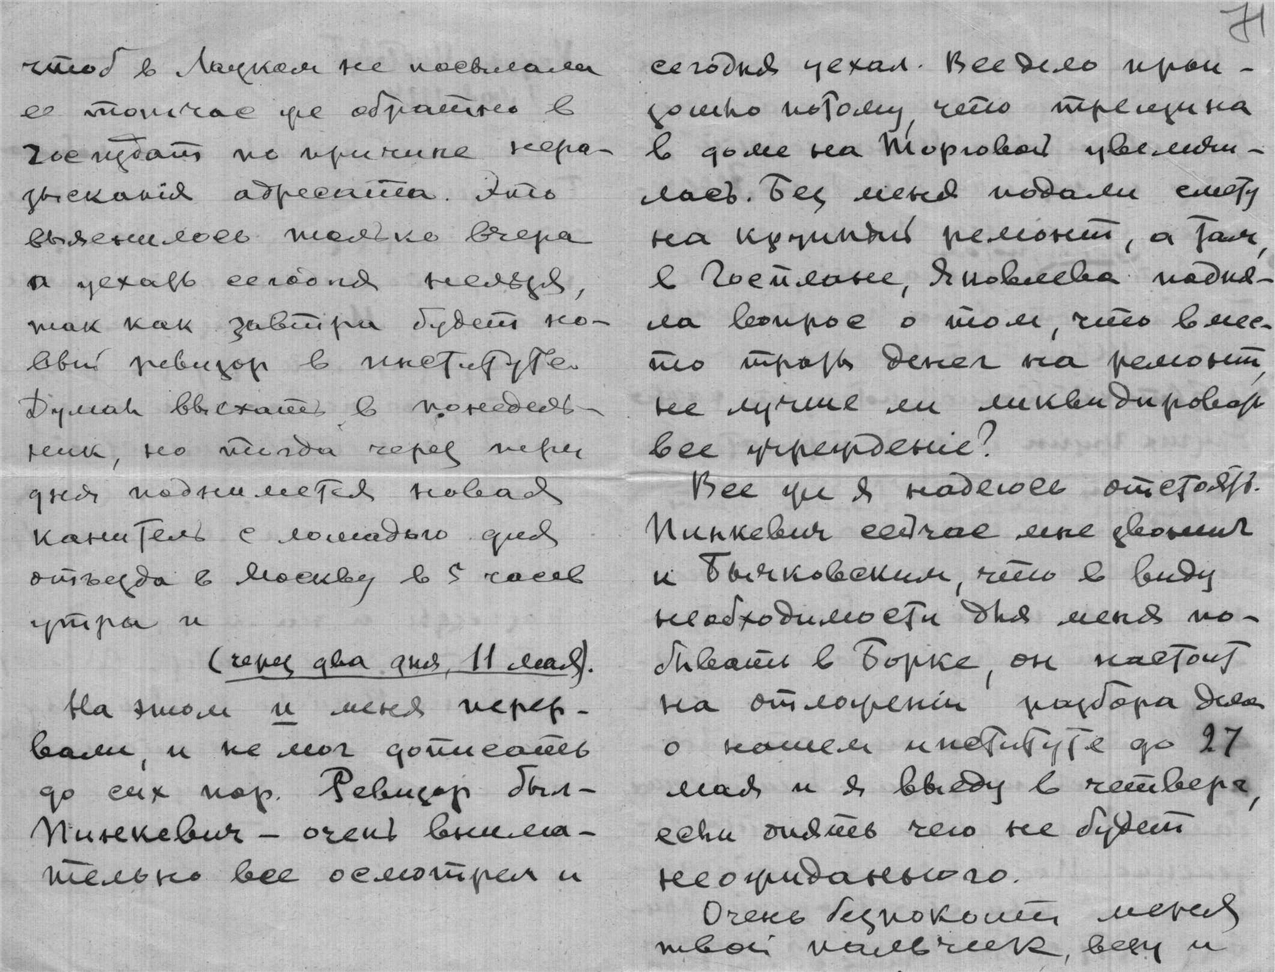 71
чтоб в Лацком не посылали
ее тотчас же обратно в
Госиздат по причине нера-
зысканія адресата. Это
выяснилось только вчера
а уехать сегодня нельзя,
так как завтра будет но-
вый ревизор в институте.
Думаю выехать в понедель-
ник, но тогда через три
дня поднимется новая
канитель с лошадью для
отъезда в Москву в 5 часов
утра и
(через два дня, 11 мая).
На этом и меня перер-
вали, и не мог дописать
до сих пор. Ревизор был -
Пинкевич - очень внима-
тельно все осмотрел и
сегодня уехал. Все дело прои-
зошло потому, что трещина
в доме на Торговой увеличи-
лась. Без меня подали смету
на крупный ремонт, а там,
в Госплане, Яковлева подня-
ла вопрос о том, что вмес-
то трат денег на ремонт,
не лучше ли ликвидировать
все учрежденіе?
Все же я надеюсь отстоять.
Пинкевич сейчас мне звонил
к Бычковским, что в виду
необходимости для меня по-
бывать в Борке, он настоит
на отложеніи разбора дела
о нашем институте до 27
мая и я выеду в четверг,
если опять чего не будет
неожиданного.
Очень безпокоит меня
твой пальчик, везу и